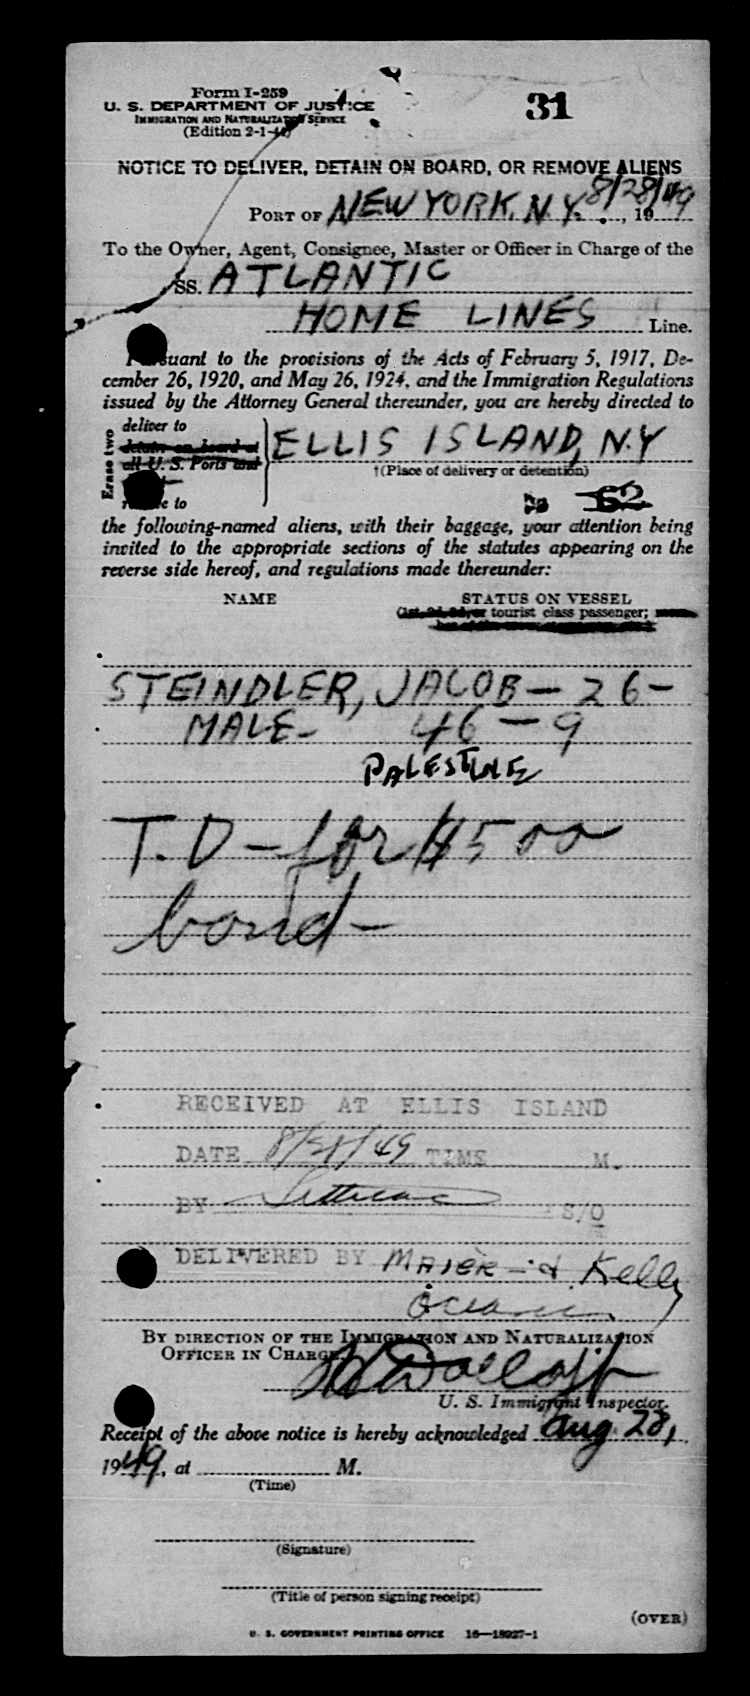 Form I-259
31
U. S. DEPARTMENT OF JUSTICE
IMMIGRATION AND NATURALIZATION SERVICE
(Edition 2-1-4
NOTICE TO DELIVER, DETAIN ON BOARD, OR REMOVE ALIENS
PORT OF NEW YORK, N.Y. 8/28/49, 19
To the Owner, Agent, Consignee, Master or Officer in Charge of the
SS. ATLANTIC
HOME LINES Line.
Pursuant to the provisions of the Acts of February 5, 1917, De-
cember 26, 1920, and May 26, 1924, and the Immigration Regulations
issued by the Attorney General thereunder, you are hereby directed to
Erase two
deliver to
detain on board at
all U. S. Ports and
ELLIS ISLAND, N.Y
†(Place of delivery or detention)
to
62
the following-named aliens, with their baggage, your attention being
invited to the appropriate sections of the statutes appearing on the
reverse side hereof, and regulations made thereunder:
NAME STATUS ON VESSEL
(1st, 2d, 3d, or tourist class passenger;
STEINDLER, JACOB - 26 -
MALE - 46 - 9
PALESTINE
T.D - for $500
bond -
RECEIVED AT ELLIS ISLAND
DATE 8/ /49 TIME M.
BY S/O
DELIVERED BY MAIER - d Kelly
BY DIRECTION OF THE IMMIGRATION AND NATURALIZATION
OFFICER IN CHARGE
U. S. Immigrant Inspector.
Receipt of the above notice is hereby acknowledged Aug. 28,
1949, at M.
(Time)
(Signature)
(Title of person signing receipt)
(OVER)
U. S. GOVERNMENT PRINTING OFFICE 16—18927-1